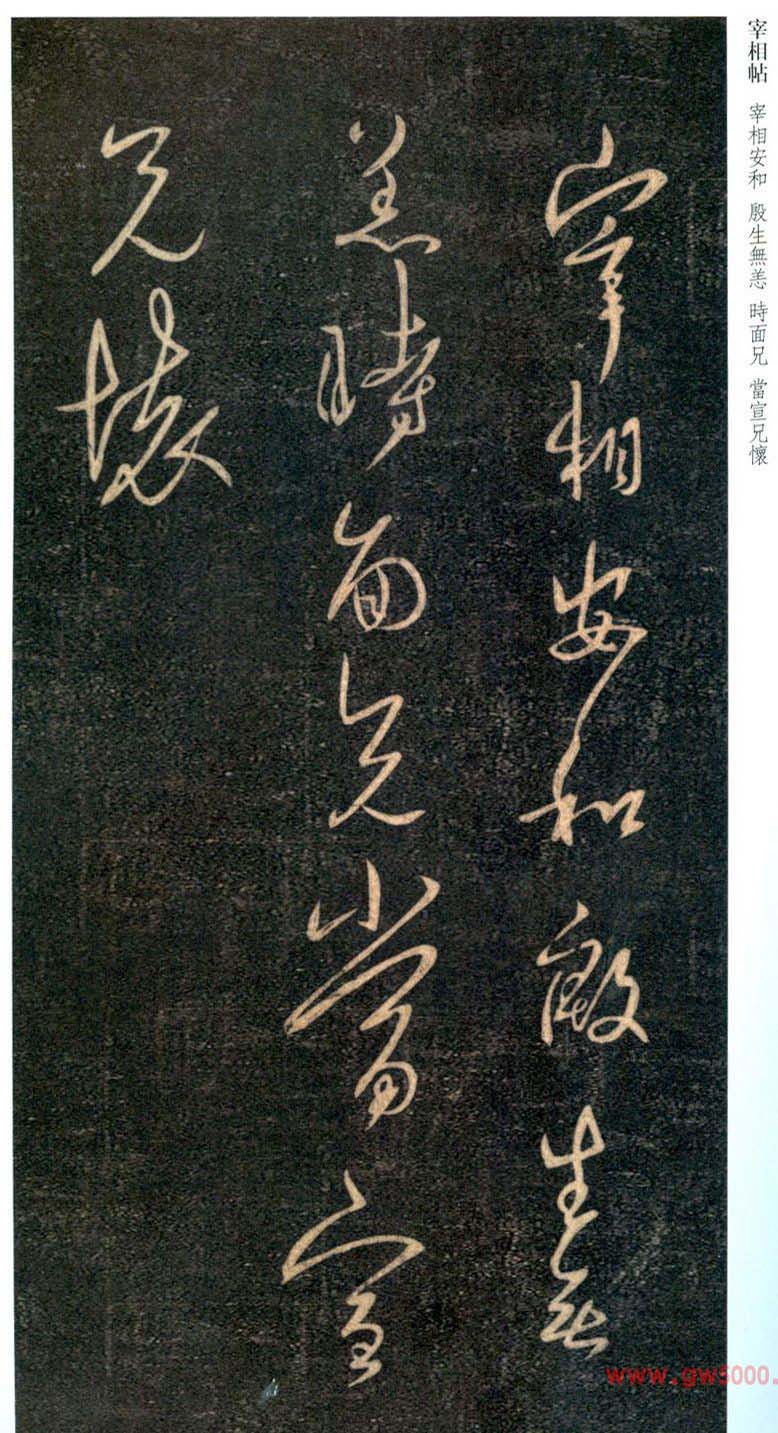 宰相帖 宰相安和 殷生無恙 時面兄 當宣兄懷
宰相安和殷生無
恙時面兄當宣
兄懷
www.gw5000.